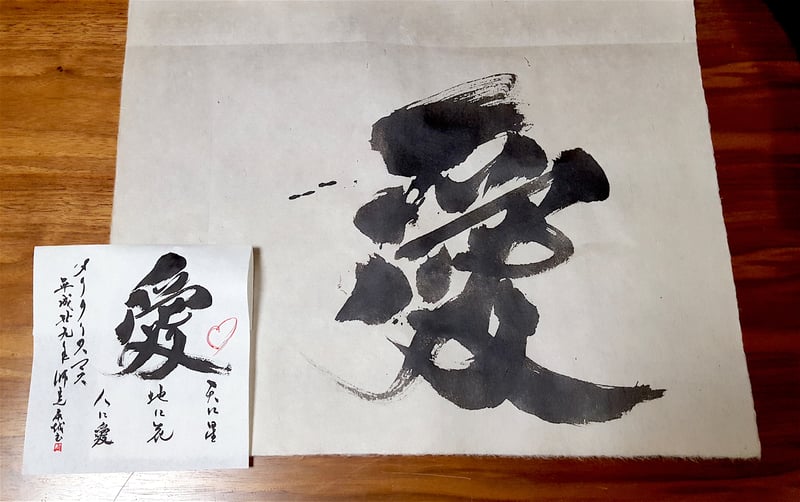 愛
愛
天に星
地に花
人に愛
メリークリスマス
平成廿九年 師走